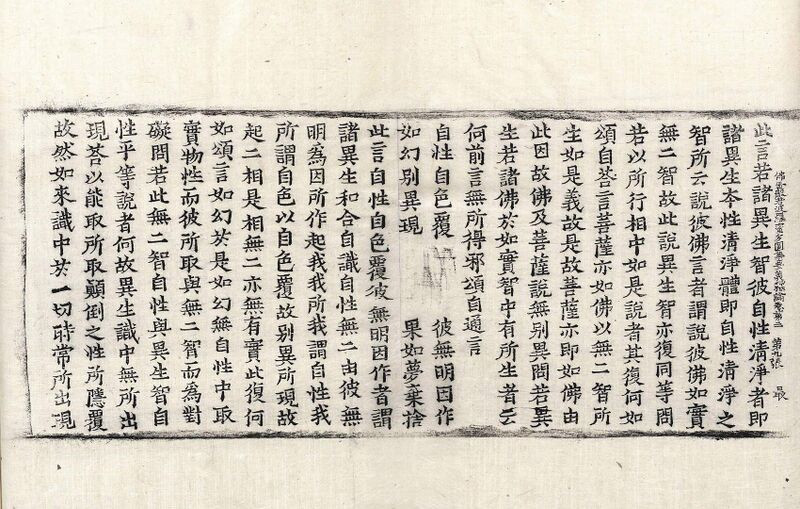 此言若諸異生智彼自性清淨者即
諸異生夲性清淨體即自性清淨之
智所云說彼佛言者謂說彼佛如實
無二智故此說異生智亦復同等問
若以所行相中如是說者其復何如
頌自荅言菩薩亦如佛以無二智所
生如是義故是故菩薩亦即如佛由
此因故佛及菩薩說無別異問若異
生若諸佛於如實智中有所生者云
何前言無所得邪頌自通言
自性自色覆 彼無明因作
如幻別異現 果如夢棄捨
此言自性自色覆彼無明因作者謂
諸異生和合自識自性無二由彼無
明為因所作起我我所我謂自性我
所謂自色以自色覆故別異所現故
起二相是相無二亦無有實此復何
如頌言如幻於是如幻無自性中取
實物性而彼所取與無二智而為對
礙問若此無二智自性與異生智自
性平等說者何故異生識中無所出
現荅以能取所取顛倒之性所隱覆
故然如來識中於一切時常所出現